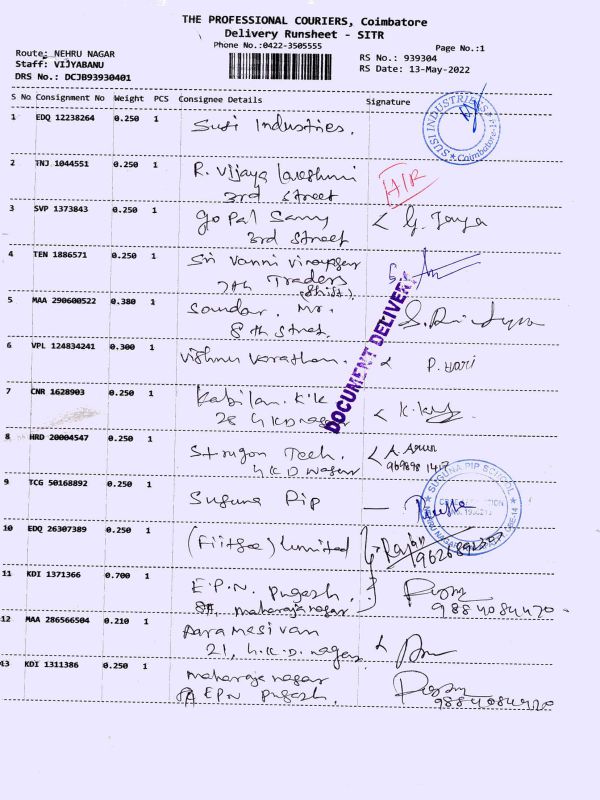 THE PROFESSIONAL COURIERS, Coimbatore
Delivery Runsheet - SITR
Phone No.:0422-3505555
Page No.:1
Route: NEHRU NAGAR
Staff: VIJYABANU
DRS No.: DCJB93930401
RS No.: 939304
RS Date: 13-May-2022
S No Consignment No Weight PCS Consignee Details Signature
1 EDQ 12238264 0.250 1 Susi Industries.
SUSI INDUSTRIES Coimbatore-14
2 TNJ 1044551 0.250 1 R. Vijaya
3rd Street
3 SVP 1373843 0.250 1 Gopal Samy
3rd Street
4 TEN 1886571 0.250 1 Sri Vanni
7th Traders
5 MAA 290600522 0.380 1 Soudar. Mr.
8th Street.
DOCUMENT DELIVERY
6 VPL 124834241 0.300 1 Vishnu P. Hari
7 CNR 1628903 0.250 1 Kabilan. K.K
28 G K D nagar
8 HRD 20004547 0.250 1 Tech. A. Arun
G.K.D nagar
9 TCG 50168892 0.250 1 Suguna Pip
SUGUNA PIP SCHOOL
10 EDQ 26307389 0.250 1 (Fiitjee) Limited Rajan
11 KDI 1371366 0.700 1 E.P.N. Pugash.
maharaja nagar 9884084420
12 MAA 286566504 0.210 1 Paramesivan
21, G.K.D. nagar
13 KDI 1311386 0.250 1 maharaja nagar
EPN Pugash. 9884084420